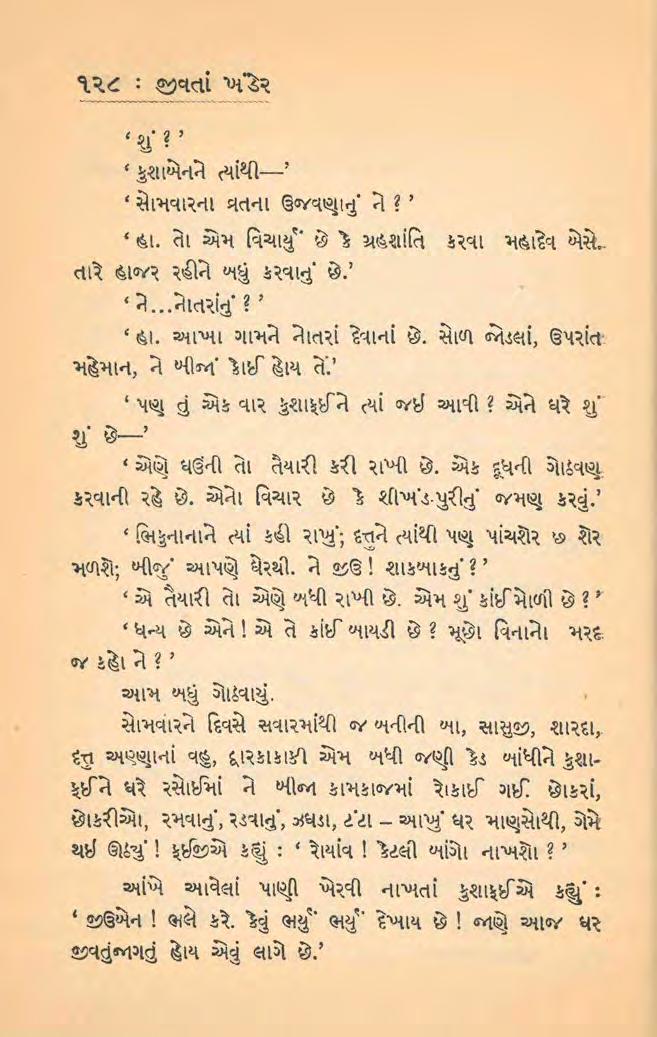 ૧૨૮ : જીવતાં ખંડેર
‘ શું ? ’
‘ કુશાબેનને ત્યાંથી—’
‘ સોમવારના વ્રતના ઉજવણાનું ને ? ’
‘ હા. તો એમ વિચાર્યું છે કે ગ્રહશાંતિ કરવા મહાદેવ બેસે.
તારે હાજર રહીને બધું કરવાનું છે.’
‘ ને...નોતરાંનું ? ’
‘ હા. આખા ગામને નોતરાં દેવાનાં છે. સોળ જોડલાં, ઉપરાંત
મહેમાન, ને બીજાં કોઈ હોય તે.’
‘ પણ તું એક વાર કુશાફઈને ત્યાં જઇ આવી ? એને ઘરે શું
શું છે—’
‘ એણે ઘઉંની તો તૈયારી કરી રાખી છે. એક દૂધની ગોઠવણ
કરવાની રહે છે. એનો વિચાર છે કે શીખંડ-પુરીનું જમણ કરવું.’
‘ ભિકુનાનાને ત્યાં કહી રાખું; દત્તુને ત્યાંથી પણ પાંચશેર છ શેર
મળશે; બીજું આપણે ઘેરથી. ને જીઉ ! શાકબાકનું ? ’
‘ એ તૈયારી તો એણે બધી રાખી છે. એમ શું કાંઈ મોળી છે ? ’
‘ ધન્ય છે એને ! એ તે કાંઈ બાયડી છે ? મૂછો વિનાનો મરદ
જ કહો ને ? ’
આમ બધું ગોઠવાયું.
સોમવારને દિવસે સવારમાંથી જ બનીની બા, સાસુજી, શારદા,
દત્તુ અણ્ણાનાં વહુ, દ્વારકાકાકી એમ બધી જણી કેડ બાંધીને કુશા-
ફઈને ઘરે રસોઈમાં ને બીજા કામકાજમાં રોકાઈ ગઈ. છોકરાં,
છોકરીઓ, રમવાનું, રડવાનું, ઝઘડા, ટંટા – આખું ઘર માણસોથી, ગેમે
થઇ ઊઠ્યું ! ફઈજીએ કહ્યું : ‘ રોયાંવ ! કેટલી બાંગો નાખશો ? ’
આંખે આવેલાં પાણી ખેરવી નાખતાં કુશાફઈએ કહ્યું :
‘ જીઉબેન ! ભલે કરે. કેવું ભર્યું ભર્યું દેખાય છે ! જાણે આજ ઘર
જીવતુંજાગતું હોય એવું લાગે છે.’